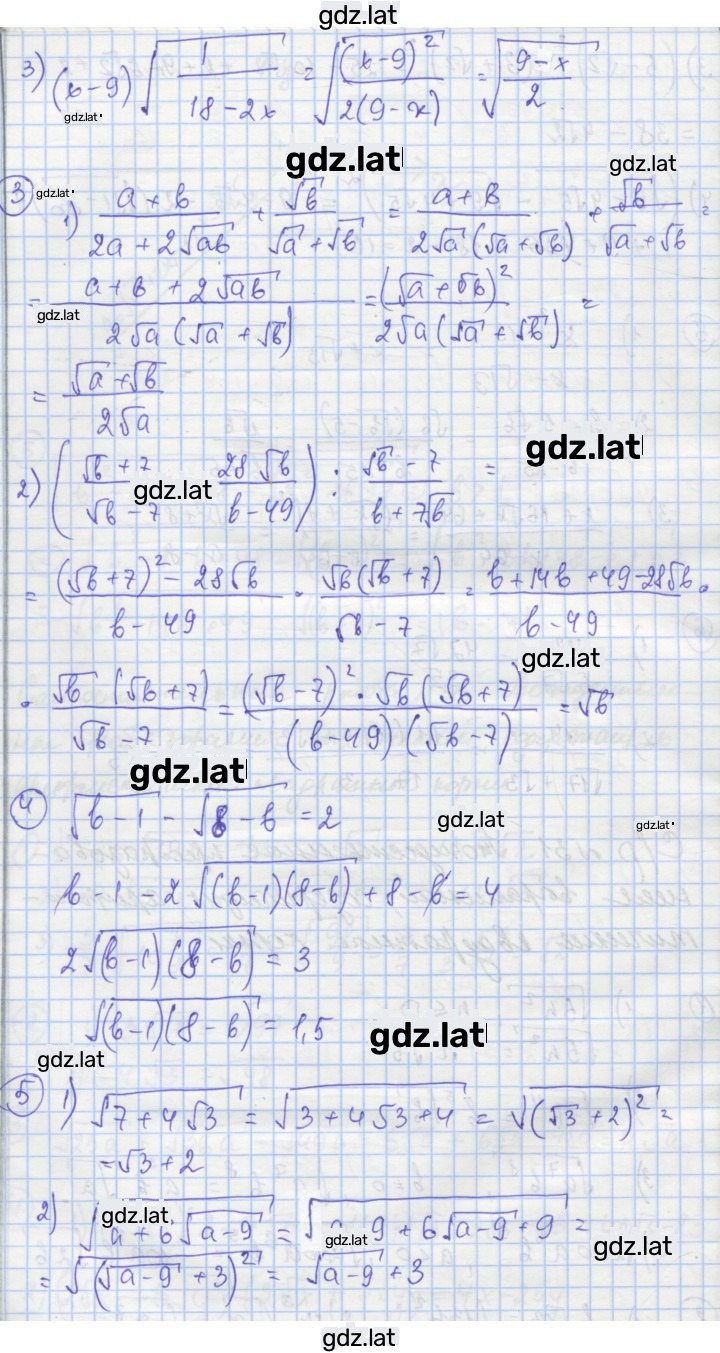 gdz.lat
3) (x-9)√(1/(18-2x)) = √((x-9)²/(2(9-x))) = √((9-x)/2)
gdz.lat
gdz.lat
gdz.lat
gdz.lat
③ 1) (a+b)/(2a+2√(ab)) + √b/(√a+√b) = (a+b)/(2√a(√a+√b)) + √b/(√a+√b) =
= (a+b+2√(ab))/(2√a(√a+√b)) = (√a+√b)²/(2√a(√a+√b)) =
gdz.lat
= (√a+√b)/(2√a)
gdz.lat
2) ((√b+7)/(√b-7) 28√b/(b-49)) : (√b-7)/(b+7√b) =
gdz.lat
= ((√b+7)²-28√b)/(b-49) · √b(√b+7)/(√b-7) = (b+14b+49-28√b)/(b-49) ·
gdz.lat
· √b(√b+7)/(√b-7) = ((√b-7)²·√b(√b+7))/((b-49)(√b-7)) = √b
gdz.lat
④ √(b-1) - √(8-b) = 2
gdz.lat
gdz.lat
b-1-2√((b-1)(8-b))+8-b = 4
2√((b-1)(8-b)) = 3
√((b-1)(8-b)) = 1,5
gdz.lat
gdz.lat
⑤ 1) √(7+4√3) = √(3+4√3+4) = √((√3+2)²) =
=√3+2
2) √(a+6√(a-9)) = √( 9+6√(a-9)+9) =
gdz.lat
gdz.lat
gdz.lat
= √((√(a-9)+3)²) = √(a-9)+3
gdz.lat